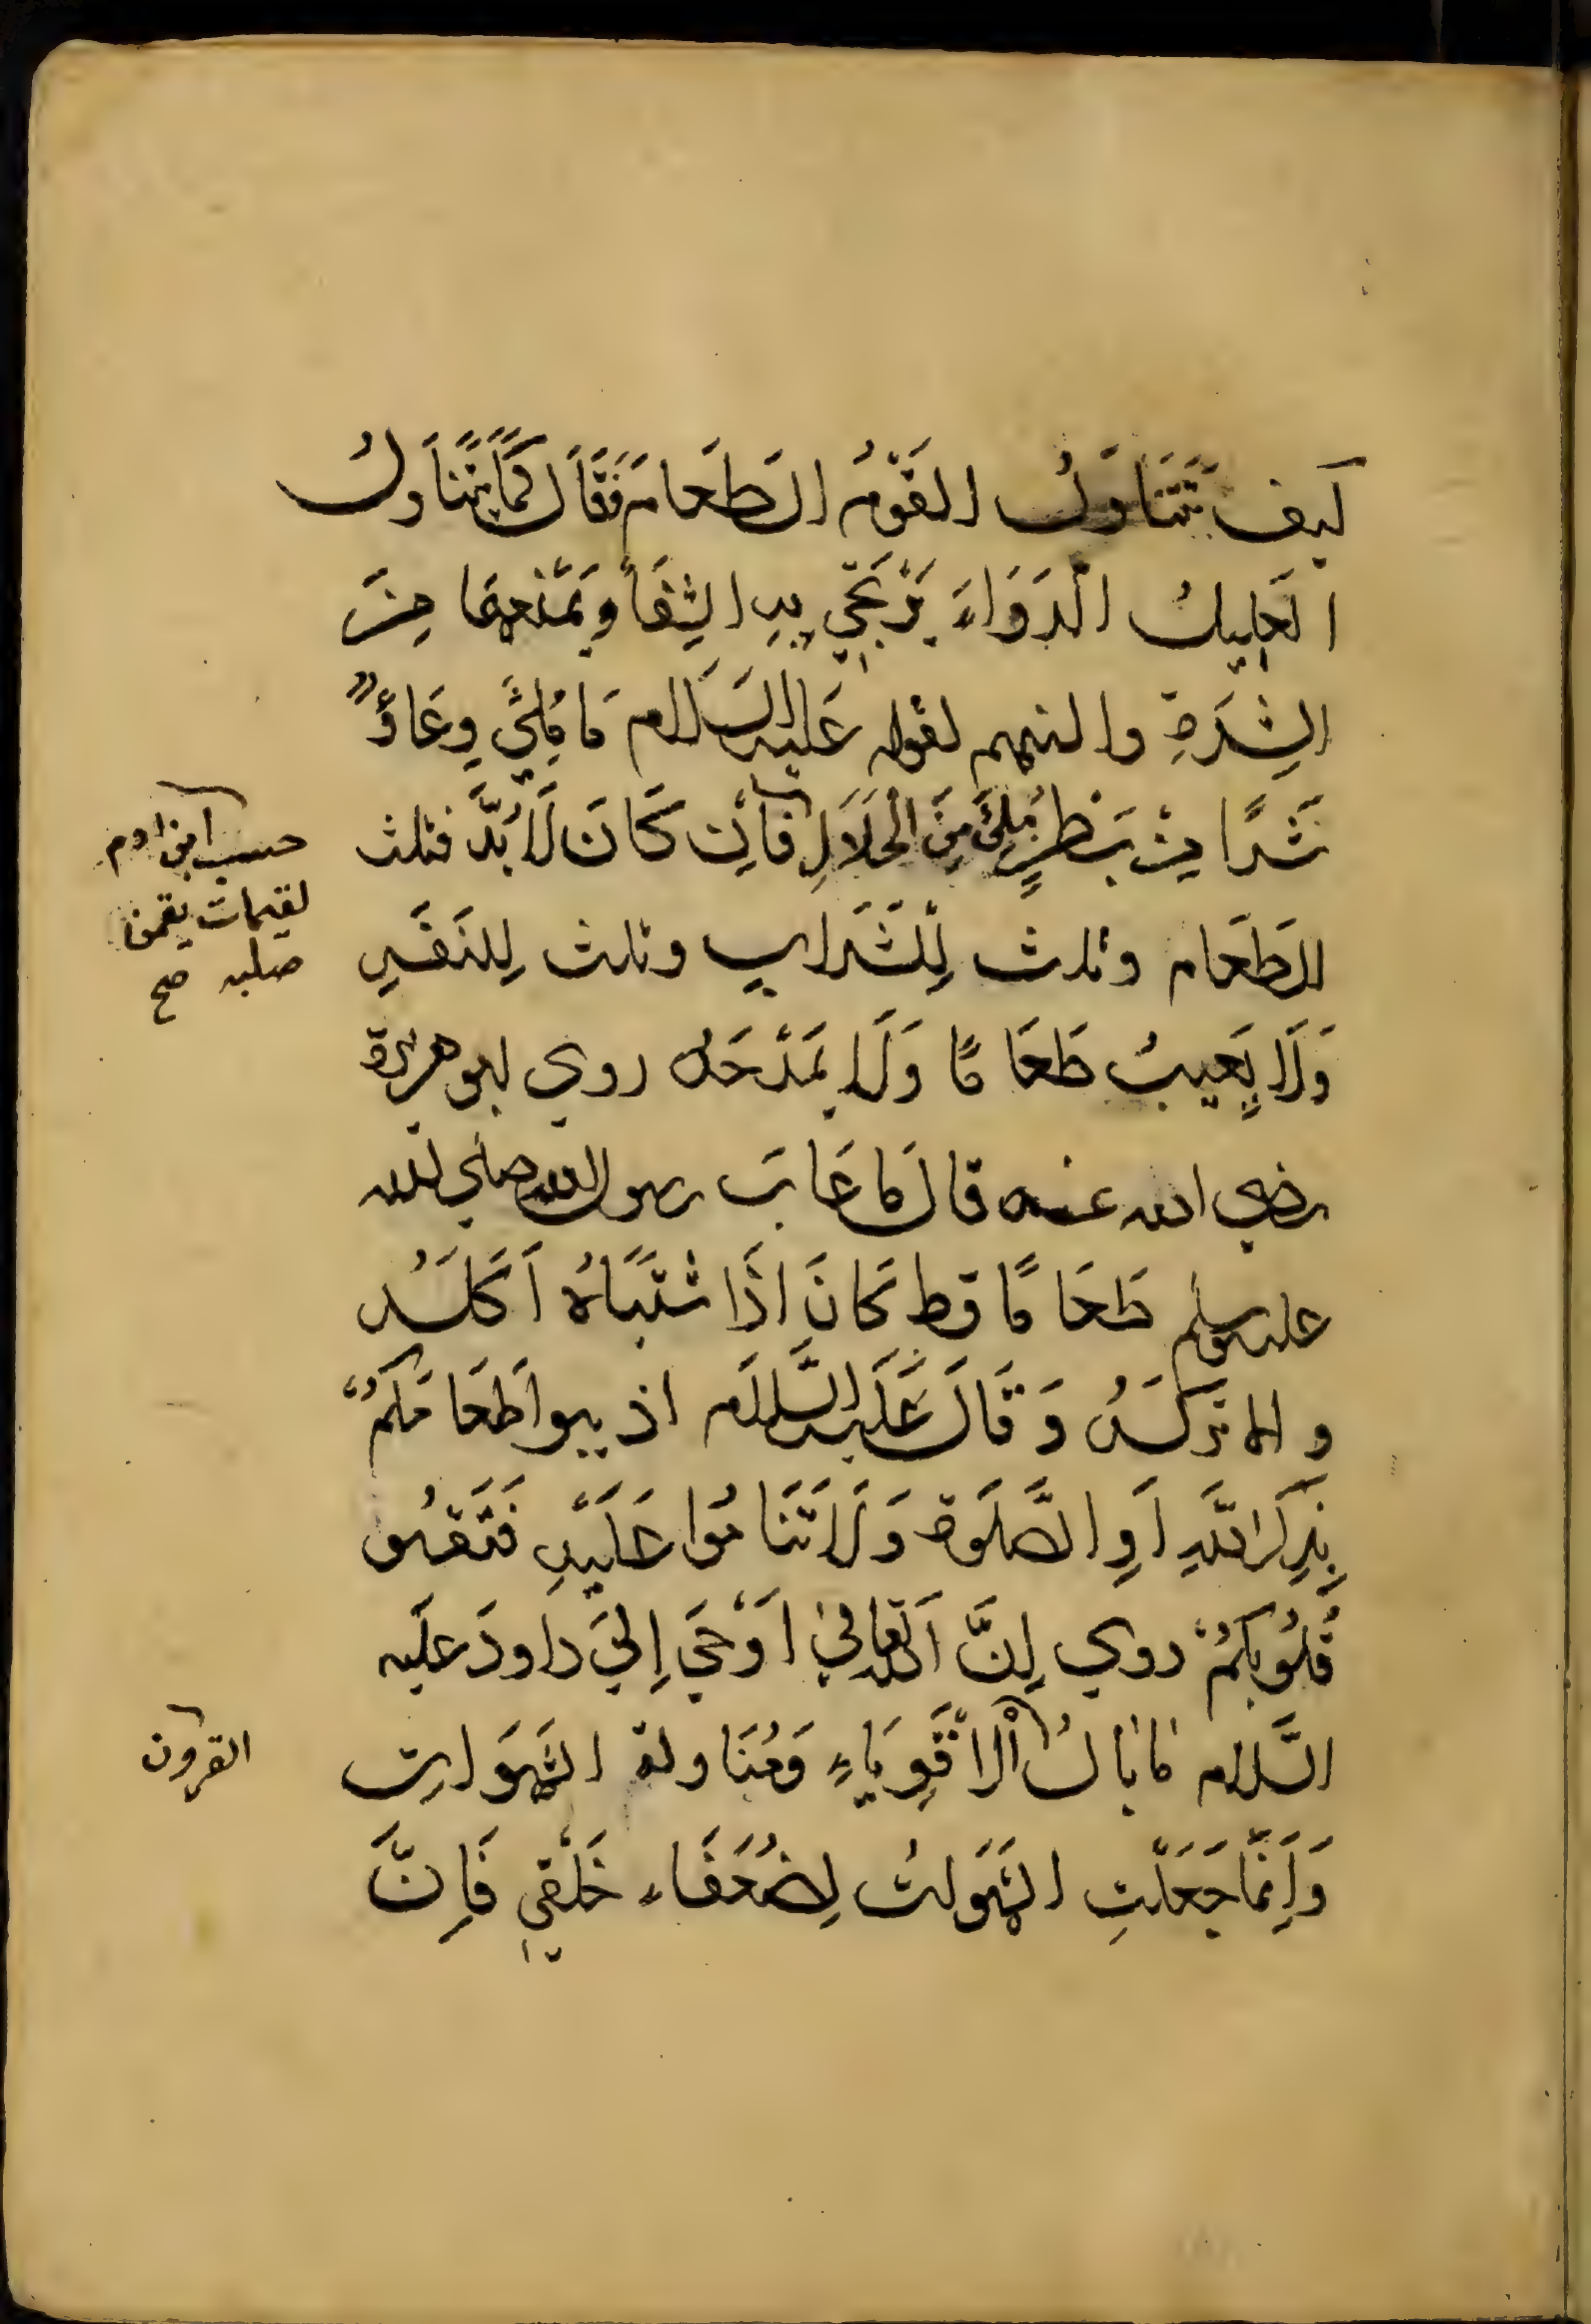 كيف تَتَنَاوَلُ القَوْمُ الطَعَامَ فَقَالَ كَمَا يَتَنَاوَلُ
العَلِيلُ الدَوَاءَ يَرْتَجِي بِهِ الشِفَأَ وَيَمْنَعهَا مِنَ
الشِرَةِ والنهم لقوله عَلَيْه السَلَام مَا مُلِئَ وِعَاؤٌ
شَرًا مِنْ بَطْنٍ مُلِئَ مِنَ الْحَلَالِ فَاِن كَانَ لَا بُدَّ فثلث
للطَعَام وثلث لِلْشَرَابِ وثلث لِلنَفَسِ
وَلَا يَعِيبُ طَعَامًا وَلَا يَمْدَحَهُ روي ابو هريرة
رضي الله عنه قالَ مَا عَابَ رسول الله صلى الله
عليه وسلم طَعَامًا قط كَانَ اِذَا شْتَهَاهُ اَكَلَهُ
والا تَرَكَهُ وَقَالَ عَلَيْه السَّلَام اذيبوا طَعَامَكُمْ
بِذِكْرِ اللَّهِ اَوِ الصَّلَوة وَلَا تَنَامُوا عَلَيْهِ فَتَقْسُو
قُلُوبِكُمْ روي اِنَّ الله تعالى اَوْحَى اِلَى داودَ عَلَيه
السَّلام مَا بَالُ الْاَقْوِيَاءِ وَمُنَاولة الشَهَوَاتِ
وَاِنَّمَا جَعَلْتِ الشَهَوَاتُ لِضُعَفَاءِ خَلْقِي فَاِنَّ
حسب ابن ادم
لقيمات يقمن
صلبه صح
القرون